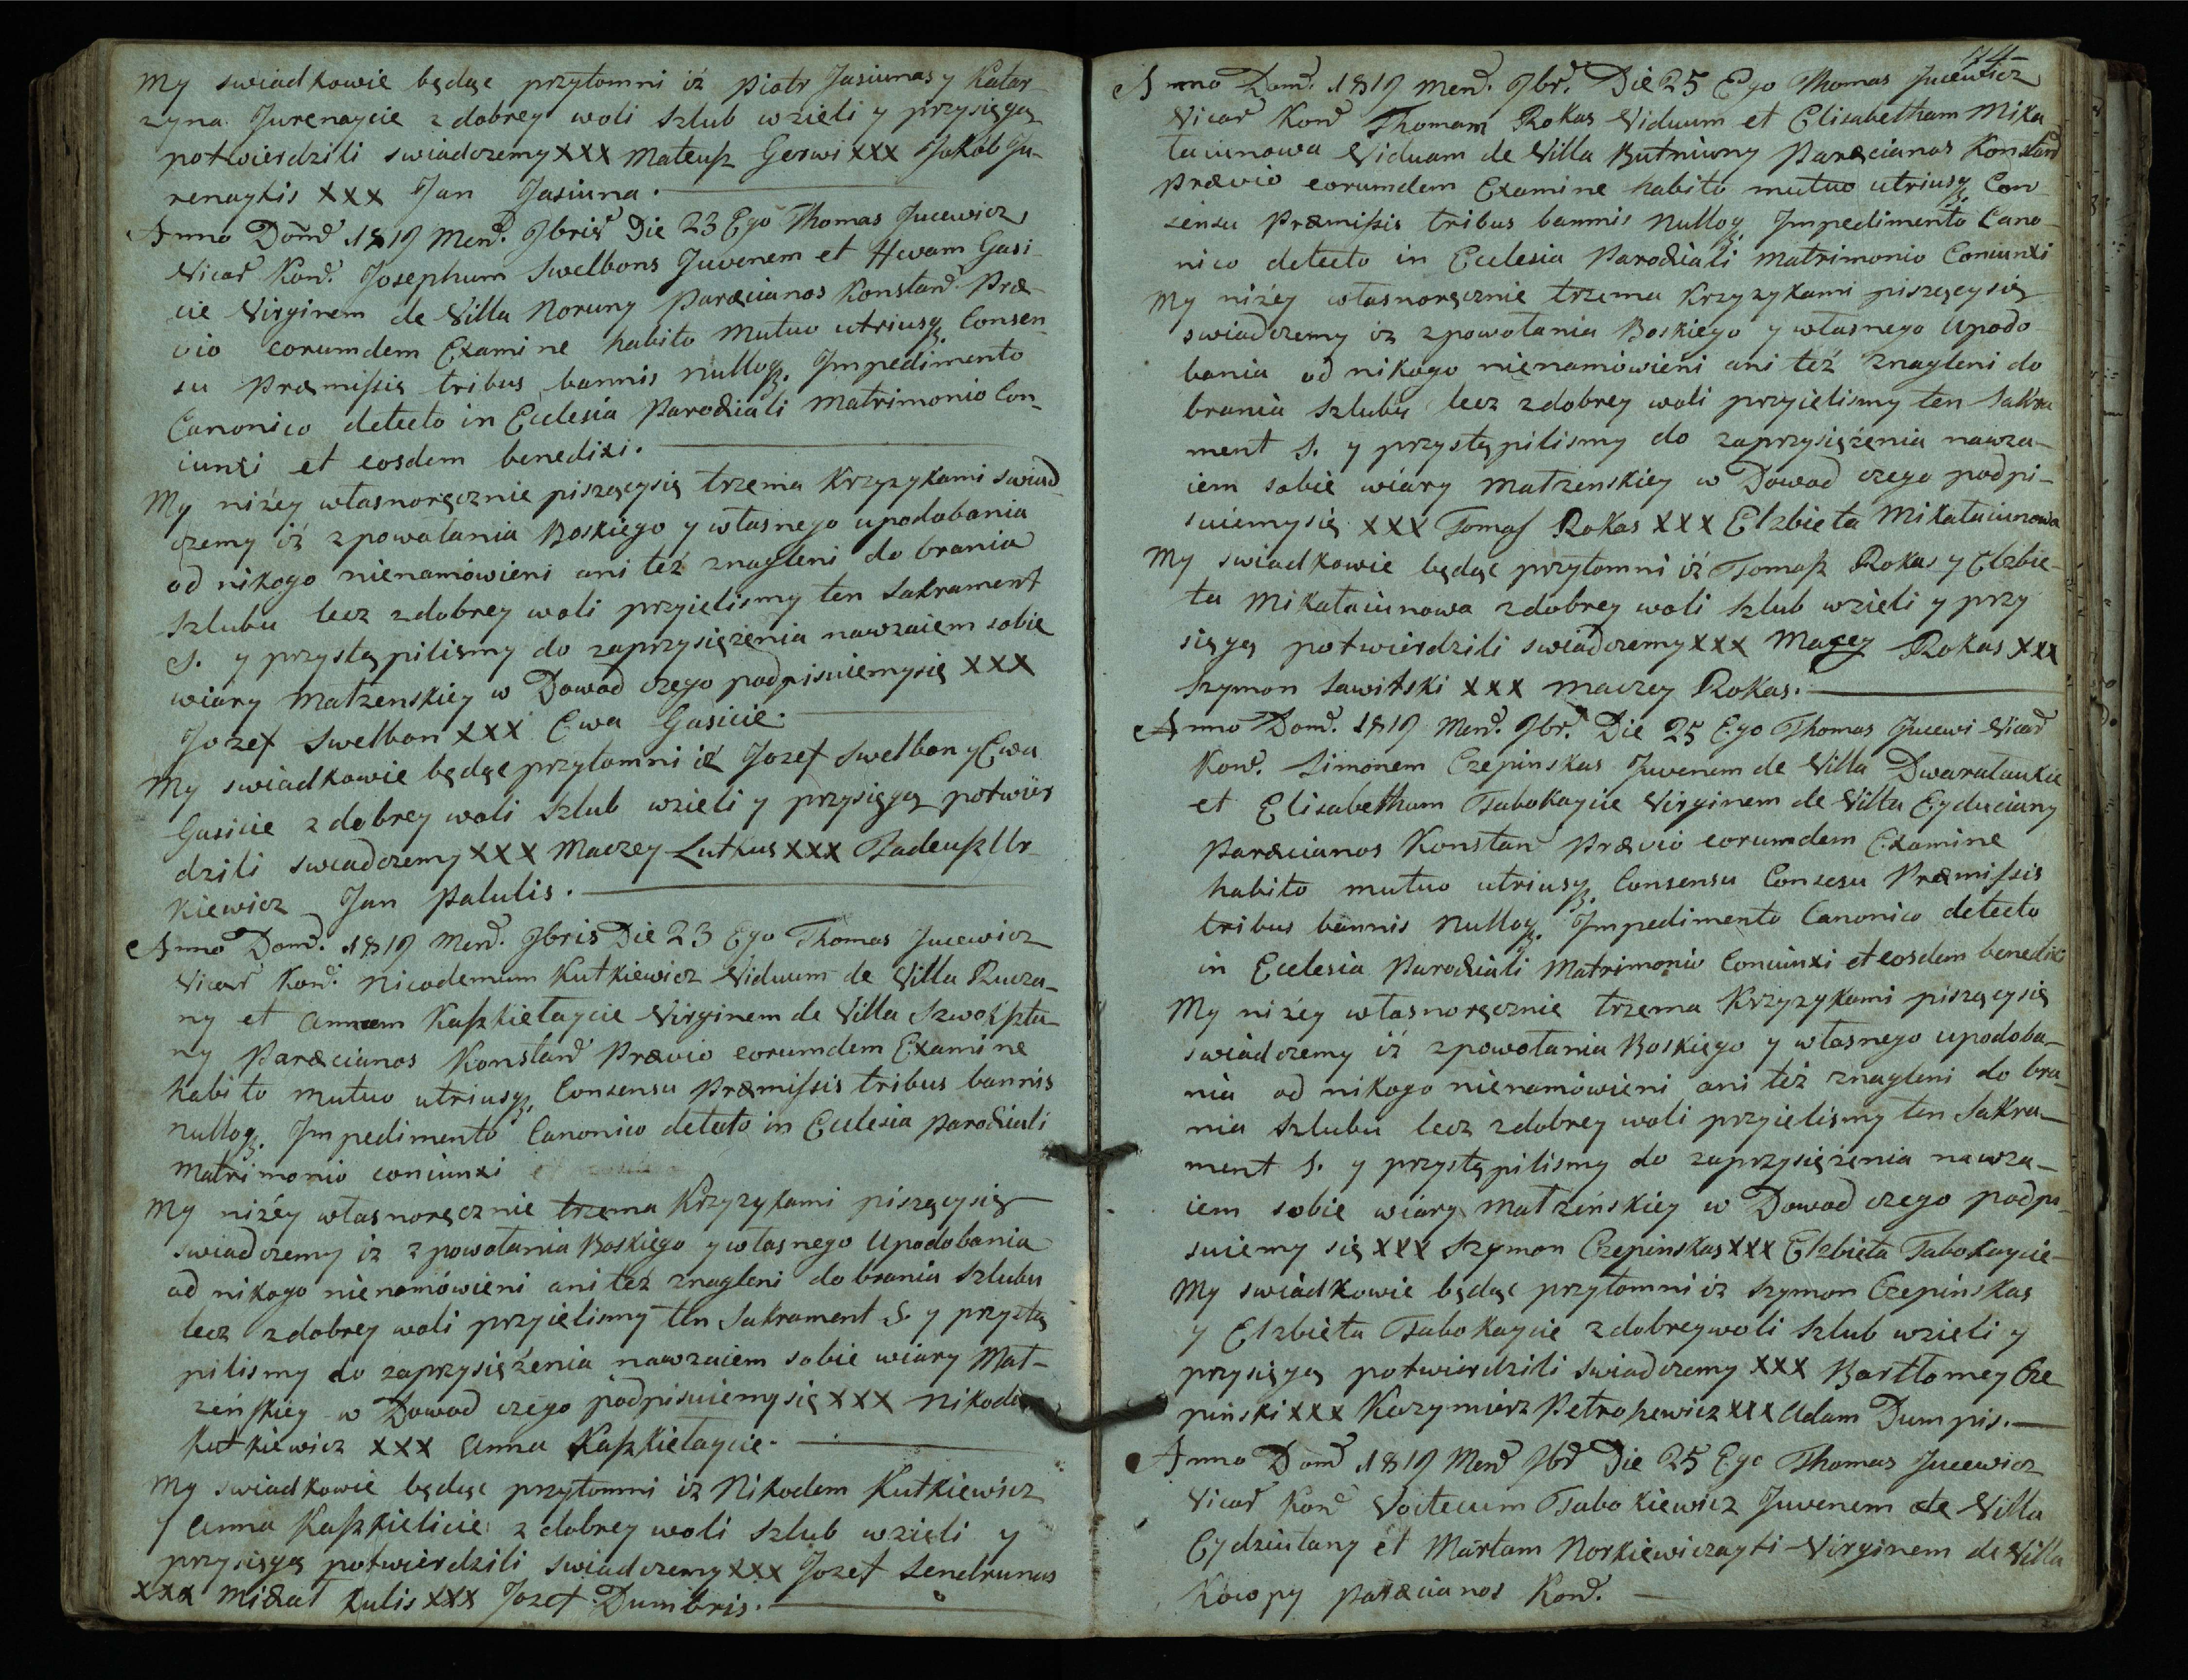 My swiadkowie będąc przytomni iż Piotr Jasiunas y Katar
zyna Jurenaycie z dobrey woli szlub wzieli y przysięgą
potwierdzili swiadczemy XXX Mateusz Gerwi XXX Jakob Ju-
renaytis XXX Jan Jasiuna.
Anno Domd 1819 Mend. 9bris Die 23 Ego Thomas Jucewicz
Vicar Kond. Josephum Swelbons Juvenem et Hevam Gasi
cie Virginem de Villa Noruny Paræcianos Konstand. Præ-
vio eorumdem Examine habito Mutuo utriusq. Consen-
su Præmissis tribus bannis nulloq. Impedimento
Canonico detecto in Ecclesia Parochiali Matrimonio Con-
iunxi et eosdem benedixi.
My niżey własnoręcznie piszącysię trzema Krzyzykami swiad
czemy iż zpowołania Boskiego y własnego upodobania
od nikogo nienamówieni ani też znagleni do brania
Szlubu lecz zdobrey woli przyielismy ten Sakrament
S. y przystąpilismy do zaprzysiężenia nawzaiem sobie
wiary Matzenskiey w Dowod czego podpisuiemysię XXX
Jozef Swelbon XXX Ewa Gasicie.
My swiadkowie będąc przytomni iż Jozef Swelbon y Ewa
Gasicie z dobrey woli szlub wzieli y przysięgą potwier
dzili swiadczemy XXX Maczey Lutkus XXX Tadeusz Ur-
kiewicz Jan Palulis.
Anno Domd. 1819 Mend. 9bris Die 23 Ego Thomas Jucewicz
Vicar Kond. Nicodemum Kutkiewicz Viduum de Villa Rucza-
ny et Annam Kaszkiełaycie Virginem de Villa Szwoksztu
ny Paræcianos Konstand Prævio eorumdem Examine
habito mutuo utriusq. Consensu Præmissis tribus bannis
nulloq. Impedimento Canonico detecto in Ecclesia Parochiali
Matrimonio coniunxi
My niżey własnoręcznie trzema Krzyzykami piszącysię
swiadczemy iż zpowołania Boskiego y własnego Upodobania
od nikogo nienamówieni ani też znagleni do brania szlubu
lecz zdobrey woli przyielismy ten Sakrament S. y przystą
pilismy do zaprzysiężenia nawzaiem sobie wiary Mat-
zeńskiey w Dowod czego podpisuiemysię XXX Nikode
Kutkiewicz XXX Anna Kaszkiełaycie.
My swiadkowie będąc przytomni iż Nikodem Kutkiewicz
y Anna Kaszkielicie z dobrey woli szlub wzieli y
przysięgą potwierdzili swiadczemy XXX Jozef Sendrunas
XXX Michał Kulis XXX Jozef Dumbris.
74
Anno Domd. 1819 Mend. 9br. Die 25 Ego Thomas Jucewicz
Vicar Kond Thomam Rokas Viduum et Elisabetham Mika
łaiunowa Viduam de Villa Butniuny Paræcianos Konstand
Prævio eorumdem Examine habito mutuo utriusq Con
sensu Præmissis tribus bannis nulloq. Impedimento Cano
nico detecto in Ecclesia Parochiali Matrimonio Coniunxi
My niżey własnoręcznie trzema Krzyzykami piszącysię
swiadczemy iż zpowołania Boskiego y własnego Upodo
bania od nikogo nienamówieni ani też znagleni do
brania Szlubu lecz zdobrey woli przyielismy ten Sakra
ment S. y przystąpilismy do zaprzysiężenia nawza-
iem sobie wiáry Matzenskiey w Dowod czego podpi-
suiemysię XXX Tomasz Rokas XXX Elzbieta Mikałaiunowa
My swiadkowie będąc przytomni iż Tomasz Rokas y Elzbie-
ta Mikałaiunowa zdobrey woli szlub wzieli y przy
sięgą potwierdzili swiadczemy XXX Macey Rokas XXX
Szymon Sawitski XXX Maczey Rokas.
Anno Domd. 1819 Mend. 9br. Die 25 Ego Thomas Jucewi Vicar
Kond. Simonem Czepinskas Juvenem de Villa Dwaralaukie
et Elisabetham Tabokaycie Virginem de Villa Eyduciany
Paræcianos Konstan Prævio eorumdem Examine
habito mutuo utriusq. Consensu Consesu Præmissis
tribus bannis nulloq. Impedimento Canonico detecto
in Ecclesia Parochiali Matrimonio Coniunxi et eosdem benedixi
My niżey własnoręcznie trzema Krzyzykami piszącysię
swiadczemy iż zpowołania Boskiego y własnego upodoba-
nia od nikogo nienamówieni ani też znagleni do bra-
nia Szlubu lecz zdobrey woli przyielismy ten Sakra-
ment S. y przystąpilismy do zaprzysiężenia nawza-
iem sobie wiary Matzeńskiey w Dowod czego podpi-
suiemy się XXX Szymon Czepinskas XXX Elzbieta Tabokaycie-
My swiadkowie będąc przytomni iż Szymon Czepinskas
y Elzbieta Tabokaycie zdobreywoli szlub wzieli y
przysięgą potwierdzili swiadczemy XXX Bartłomey Cze
pinski XXX Kazymierz Petroszewicz XXX Adam Dumpis.
Anno Domd 1819 Mend 9br Die 25 Ego Thomas Jucewicz
Vicar Kond Voitecum Tabokiewicz Juvenem de Villa
Eydziutany et Martam Norkiewiczayti Virginem de Villa
Kowopy Paræcianos Kond.